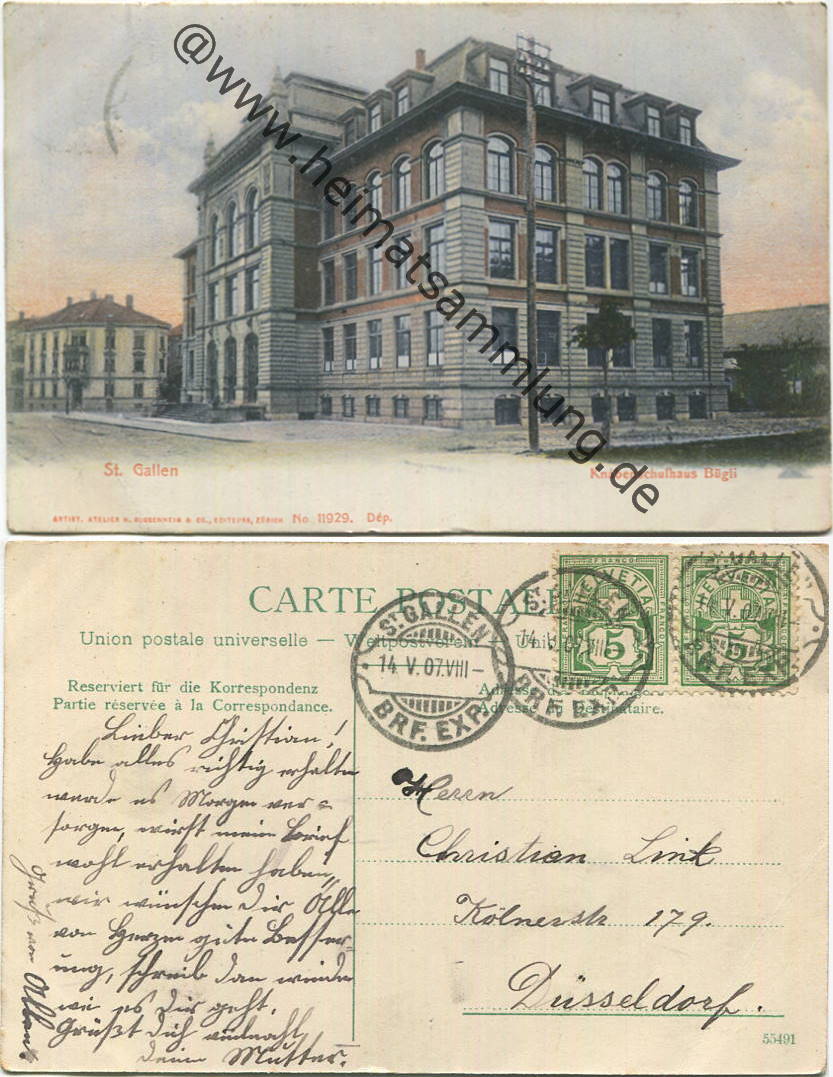 @www.heimatsammlung.de
St. Gallen
Knabenschulhaus Bügli
ARTIST. ATELIER H. GUGGENHEIM & CO., EDITEURS, ZÜRICH No 11929. Dép.
CARTE POSTALE
Union postale universelle — Weltpostverein — Uni
Reserviert für die Korrespondenz
Partie réservée à la Correspondance.
Adresse du Destinataire.
ST. GALLEN
14. V. 07. VIII —
BRF. EXP.
ST. GALLEN
14. V. 07. VIII
BRF. EXP.
FRANCO
HELVETIA
5
FRANCO
HELVETIA
5
ST. GALLEN
V. 07. VIII
BRF. EXP.
Lieber Christian!
Habe alles richtig erhalten
werde es Morgen ver=
sorgen, wirst meinen Brief
wohl erhalten haben,
wir wünschen Dir Alle
von Herzen gute Besser=
ung, schreib dan wieder
wie es Dir geht.
Grüßt Dich vielmals
deine Mutter.
Gruß von Allen
Herrn
Christian Link
Kölnerstr 179.
Düsseldorf.
55491